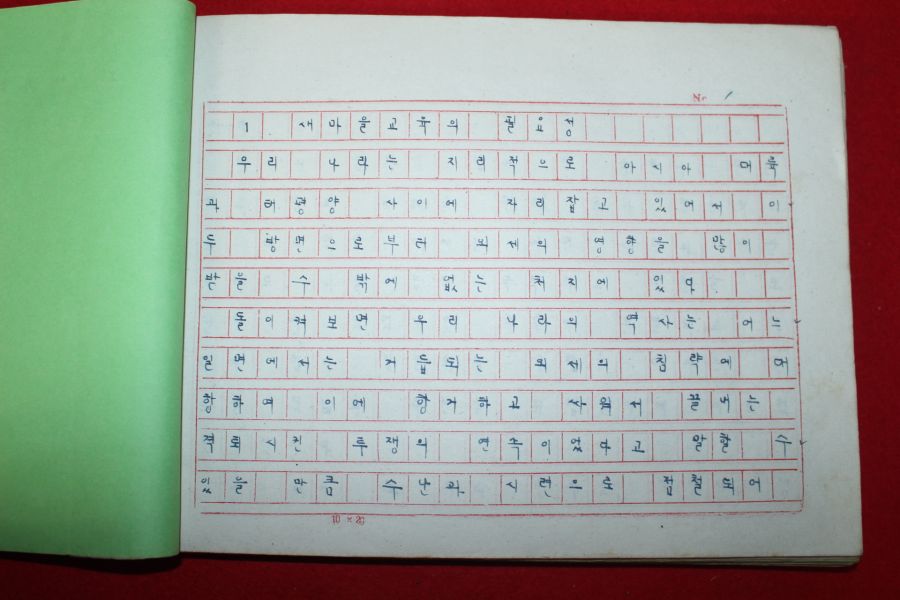 No. 1
1 새마을교육의 필요성
우리 나라는 지리적으로 아시아 대륙
과 태평양 사이에 자리잡고 있어서 이
두 방면으로부터 외세의 영향을 많이
받을 수 밖에 없는 처지에 있다.
돌이켜보면 우리 나라의 역사는 어느
일면에서는 거듭되는 외세의 침략에 대
항하며 이에 항거하고
격퇴시킨 투쟁의 연속이었다고 말할 수
있을 만큼 수난과 시련으로 점철되어
10 × 20